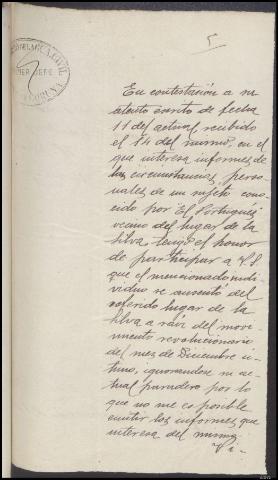 5
En contestación a su
atento escrito de fecha
11 del actual recibido
el 14 del mismo, en el
que interesa informes de
las circunstancias perso-
nales de un sujeto cono-
cido por "El Portugués"
vecino del lugar de la
Silva tengo el honor
de participar a V.S.
que el mencionado indi-
viduo se ausentó del
referido lugar de la
Silva a raíz del movi-
miento revolucionario
del mes de Diciembre úl-
timo, ignorandose su ac-
tual paradero por lo
que no me es posible
emitir los informes que
interesa del mismo.